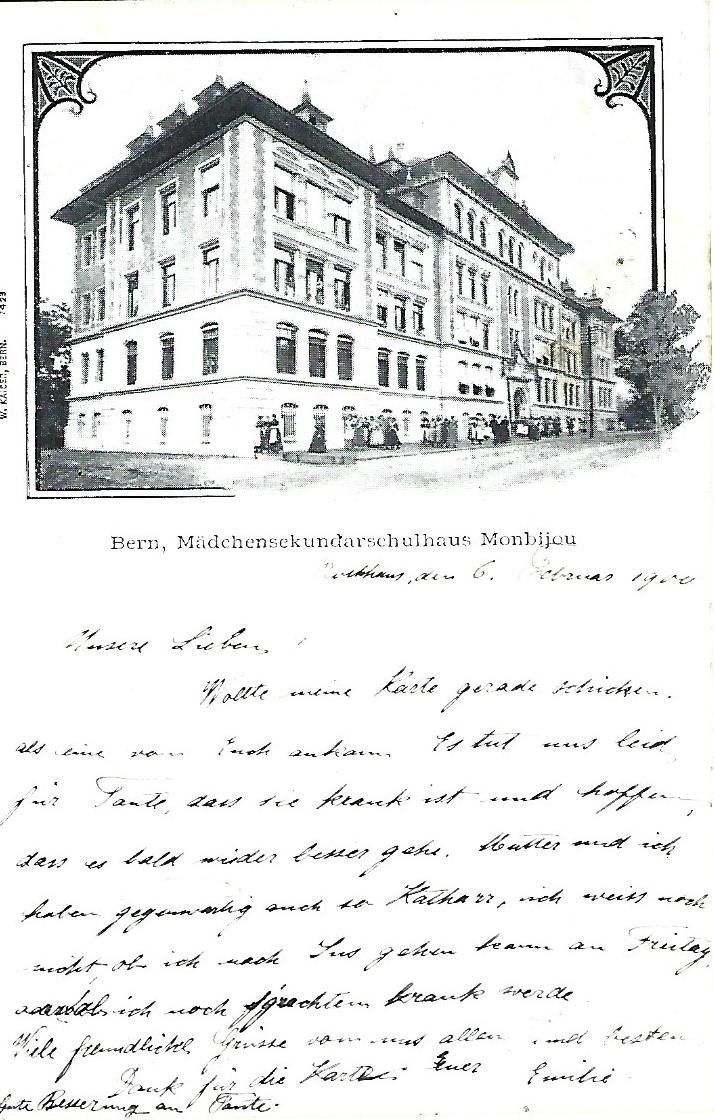 W. KAISER, BERN. 1429
Bern, Mädchensekundarschulhaus Monbijou
den 6. Februar 1900
Unsere Lieben,
Wollte meine Karte gerade schicken,
als eine von Euch ankam. Es tut uns leid
für Tante, dass sie krank ist und hoffen,
dass es bald wieder besser gehe. Mutter und ich
haben gegenwärtig auch so Katharr, ich weiss noch
nicht, ob ich nach Ins gehen kann am Freitag
ich noch krank werde
Viele freundliche Grüsse von uns allen und besten
Dank für die Karte. Euer Emilie
Gute Besserung an Tante.